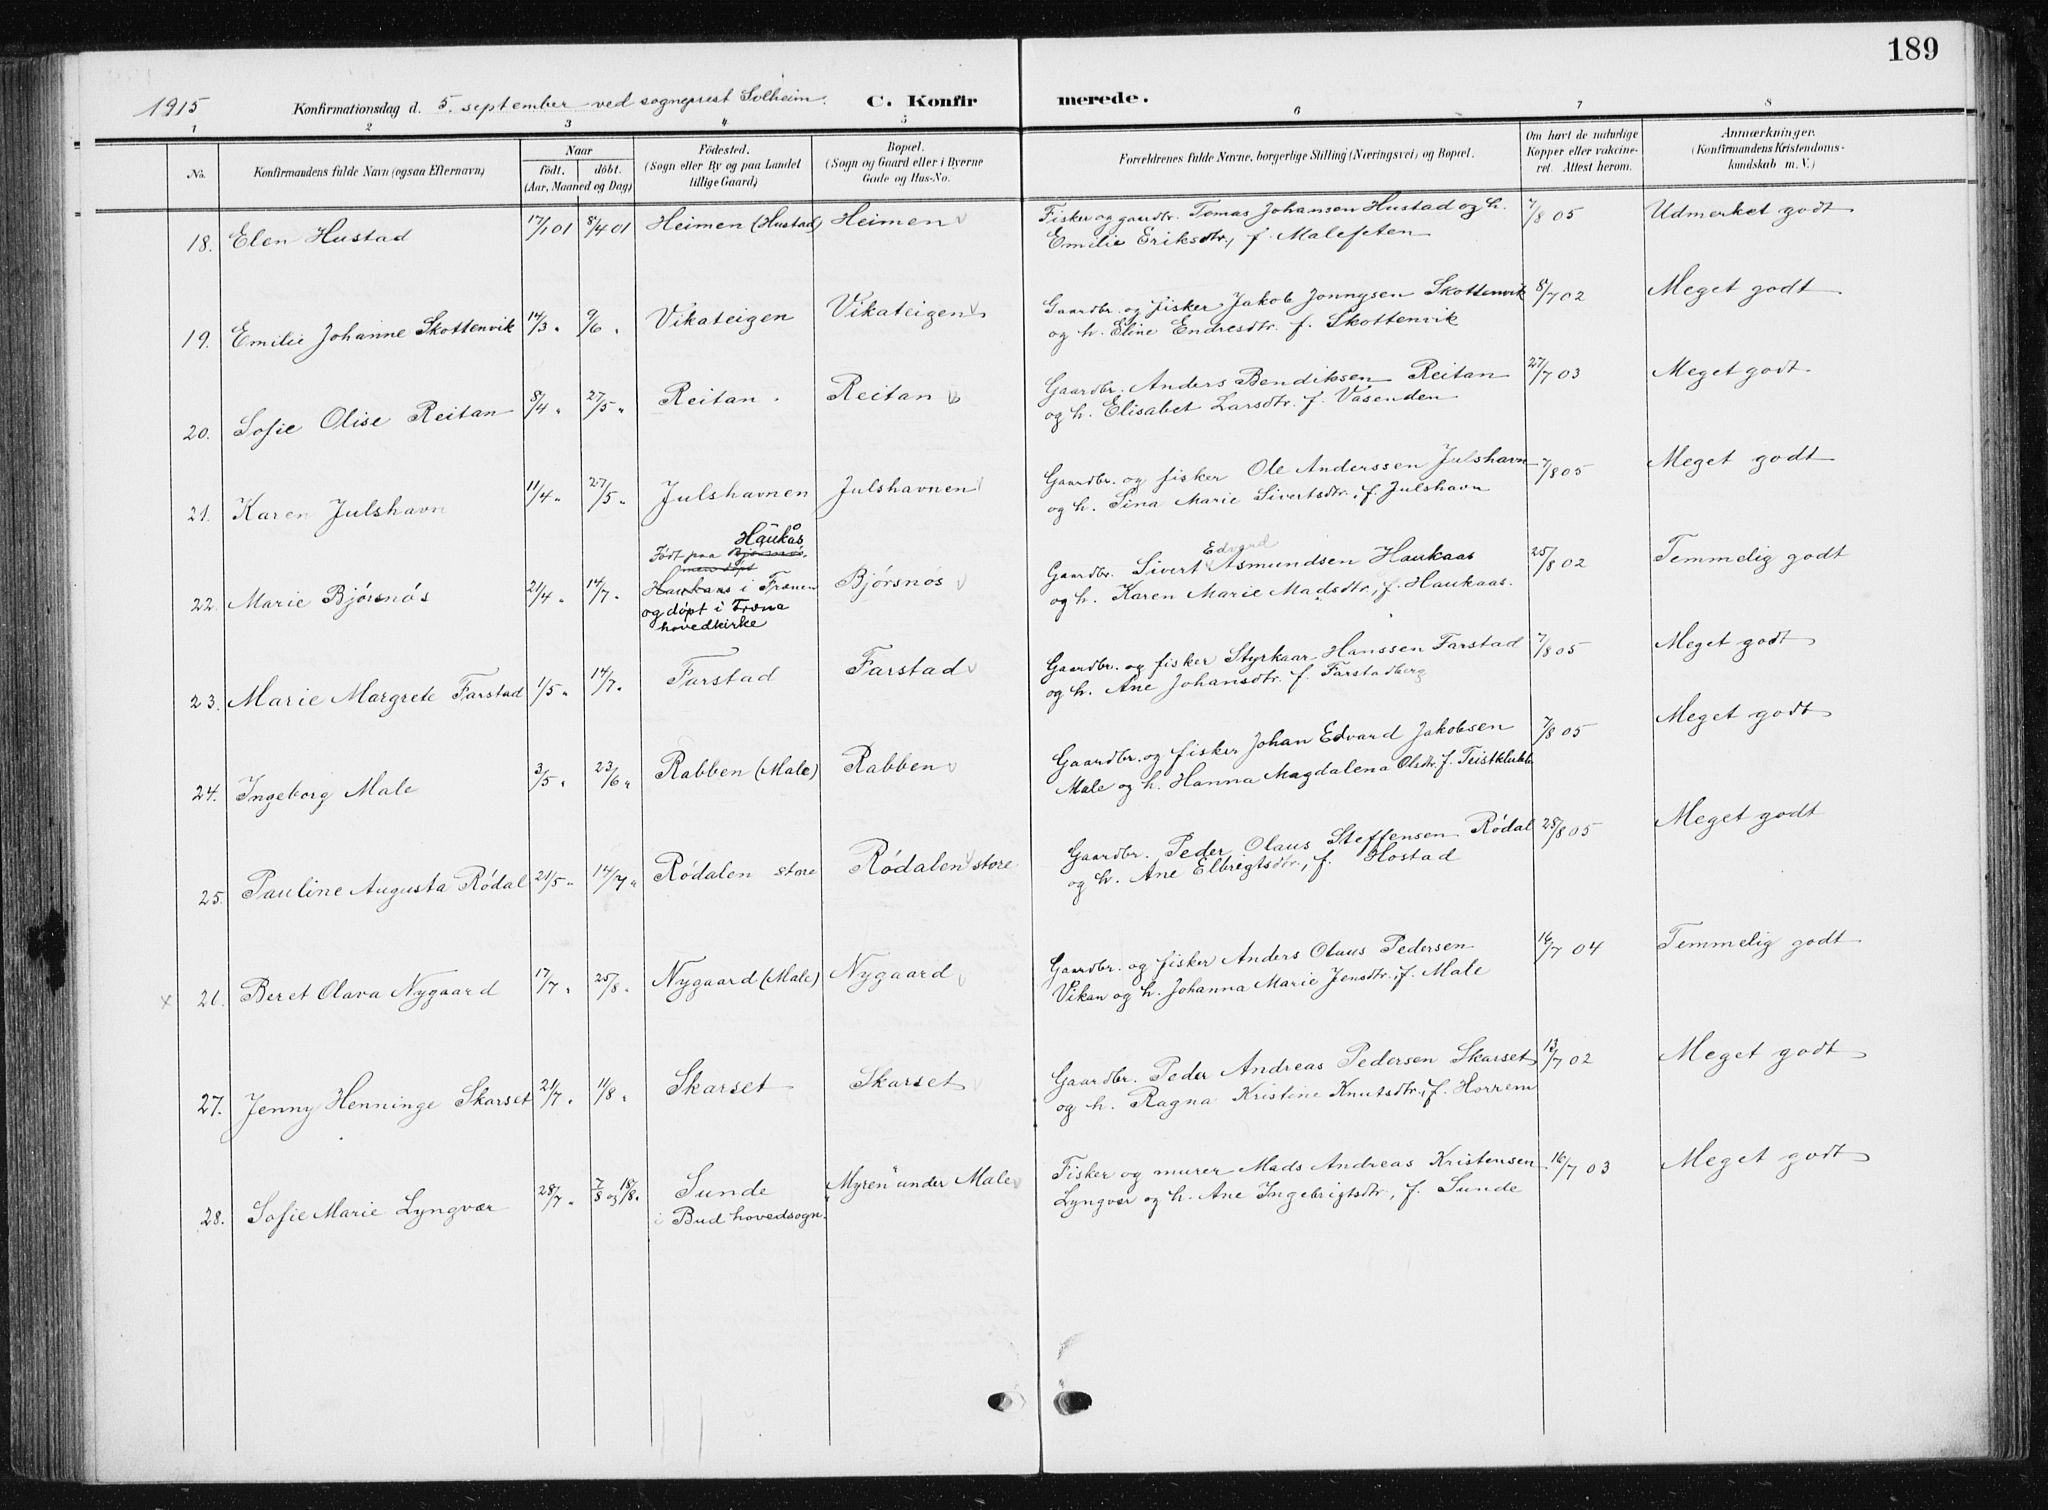 189
1915 Konfirmationsdag d. 5. september ved sogneprest Solheim. C. Konfirmerede.
1 2 3 4 5 6 7 8
No.
Konfirmandens fulde Navn (ogsaa Efternavn)
Naar
født. døbt.
(Aar, Maaned og Dag)
Fødested.
(Sogn eller By og paa Landet
tillige Gaard)
Bopæl.
(Sogn og Gaard eller i Byerne
Gade og Hus-No.
Forældrenes fulde Navne, borgerlige Stilling (Næringsvei) og Bopæl.
Om havt de naturlige
Kopper eller vakcine-
ret. Attest herom.
Anmærkninger.
(Konfirmandens Kristendoms-
kundskab m. V.)
18. Elen Hustad 17/1 01 8/4 01 Heimen (Hustad) Heimen Fisker og gaardbr. Tomas Johansen Hustad og h. 7/8 05 Udmerket godt
Emilie Eriksdtr, f. Maleseten
19. Emilie Johanne Skottenvik 14/3 " 9/6 " Vikateigen Vikateigen Gaardbr. og fisker Jakob Jonnysen Skottenvik 8/7 02 Meget godt
og h. Eline Endresdtr. f. Skottenvik
20. Sofie Olise Reitan 8/4 " 27/5 " Reitan Reitan Gaardbr. Anders Bendiksen Reitan 27/7 03 Meget godt
og h. Elisabet Larsdtr. f. Vasenden
21. Karen Julshavn 11/4 " 27/5 " Julshavnen Julshavnen Gaardbr. og fisker Ole Anderssen Julshavn 7/8 05 Meget godt
og h. Sina Marie Sivertsdtr., f. Julshavn
22. Marie Bjørsnøs 21/4 " 14/7 " Født paa Bjørsnøs Haukås
men døpt
Haukaas i Frænen
og døpt i Fræna
hovedkirke
Bjørsnøs Gaardbr. Sivert Edvard Asmundsen Haukaas 25/8 02 Temmelig godt
og h. Karen Marie Madsdtr., f. Haukaas.
23. Marie Margrete Farstad 1/5 " 14/7 " Farstad Farstad Gaardbr. og fisker Styrkaar Hanssen Farstad 7/8 05 Meget godt
og h. Ane Johansdtr. f. Farstadberg
24. Ingeborg Male 3/5 " 23/6 " Rabben (Male) Rabben Gaardbr. og fisker Johan Edvard Jakobsen 7/8 05 Meget godt
Male og h. Hanna Magdalena Olsdtr. f. Teistklubb
25. Pauline Augusta Rødal 21/5 " 14/7 " Rødalen store Rødalen store Gaardbr. Peder Olaus Steffensen Rødal 28/8 05 Meget godt
og h. Ane Elbrigtsdtr., f. Hostad
x 26. Beret Olava Nygaard 17/7 " 25/8 " Nygaard (Male) Nygaard Gaardbr. og fisker Anders Olaus Pedersen 16/7 04 Temmelig godt
Vikan og h. Johanna Marie Jensdtr., f. Male
27. Jenny Henninge Skarset 21/7 " 11/8 " Skarset Skarset Gaardbr. Peder Andreas Pedersen Skarset 13/7 02 Meget godt
og h. Ragna Kristine Knutsdtr., f. Horrem
28. Sofie Marie Lyngvær 28/7 " 7/8 og 18/8 " Sunde "Myren" under Male Fisker og murer Mads Andreas Kristensen 16/7 03 Meget godt
i Bud hovedsogn. Lyngvær og h. Ane Ingebrigtsdtr, f. Sunde